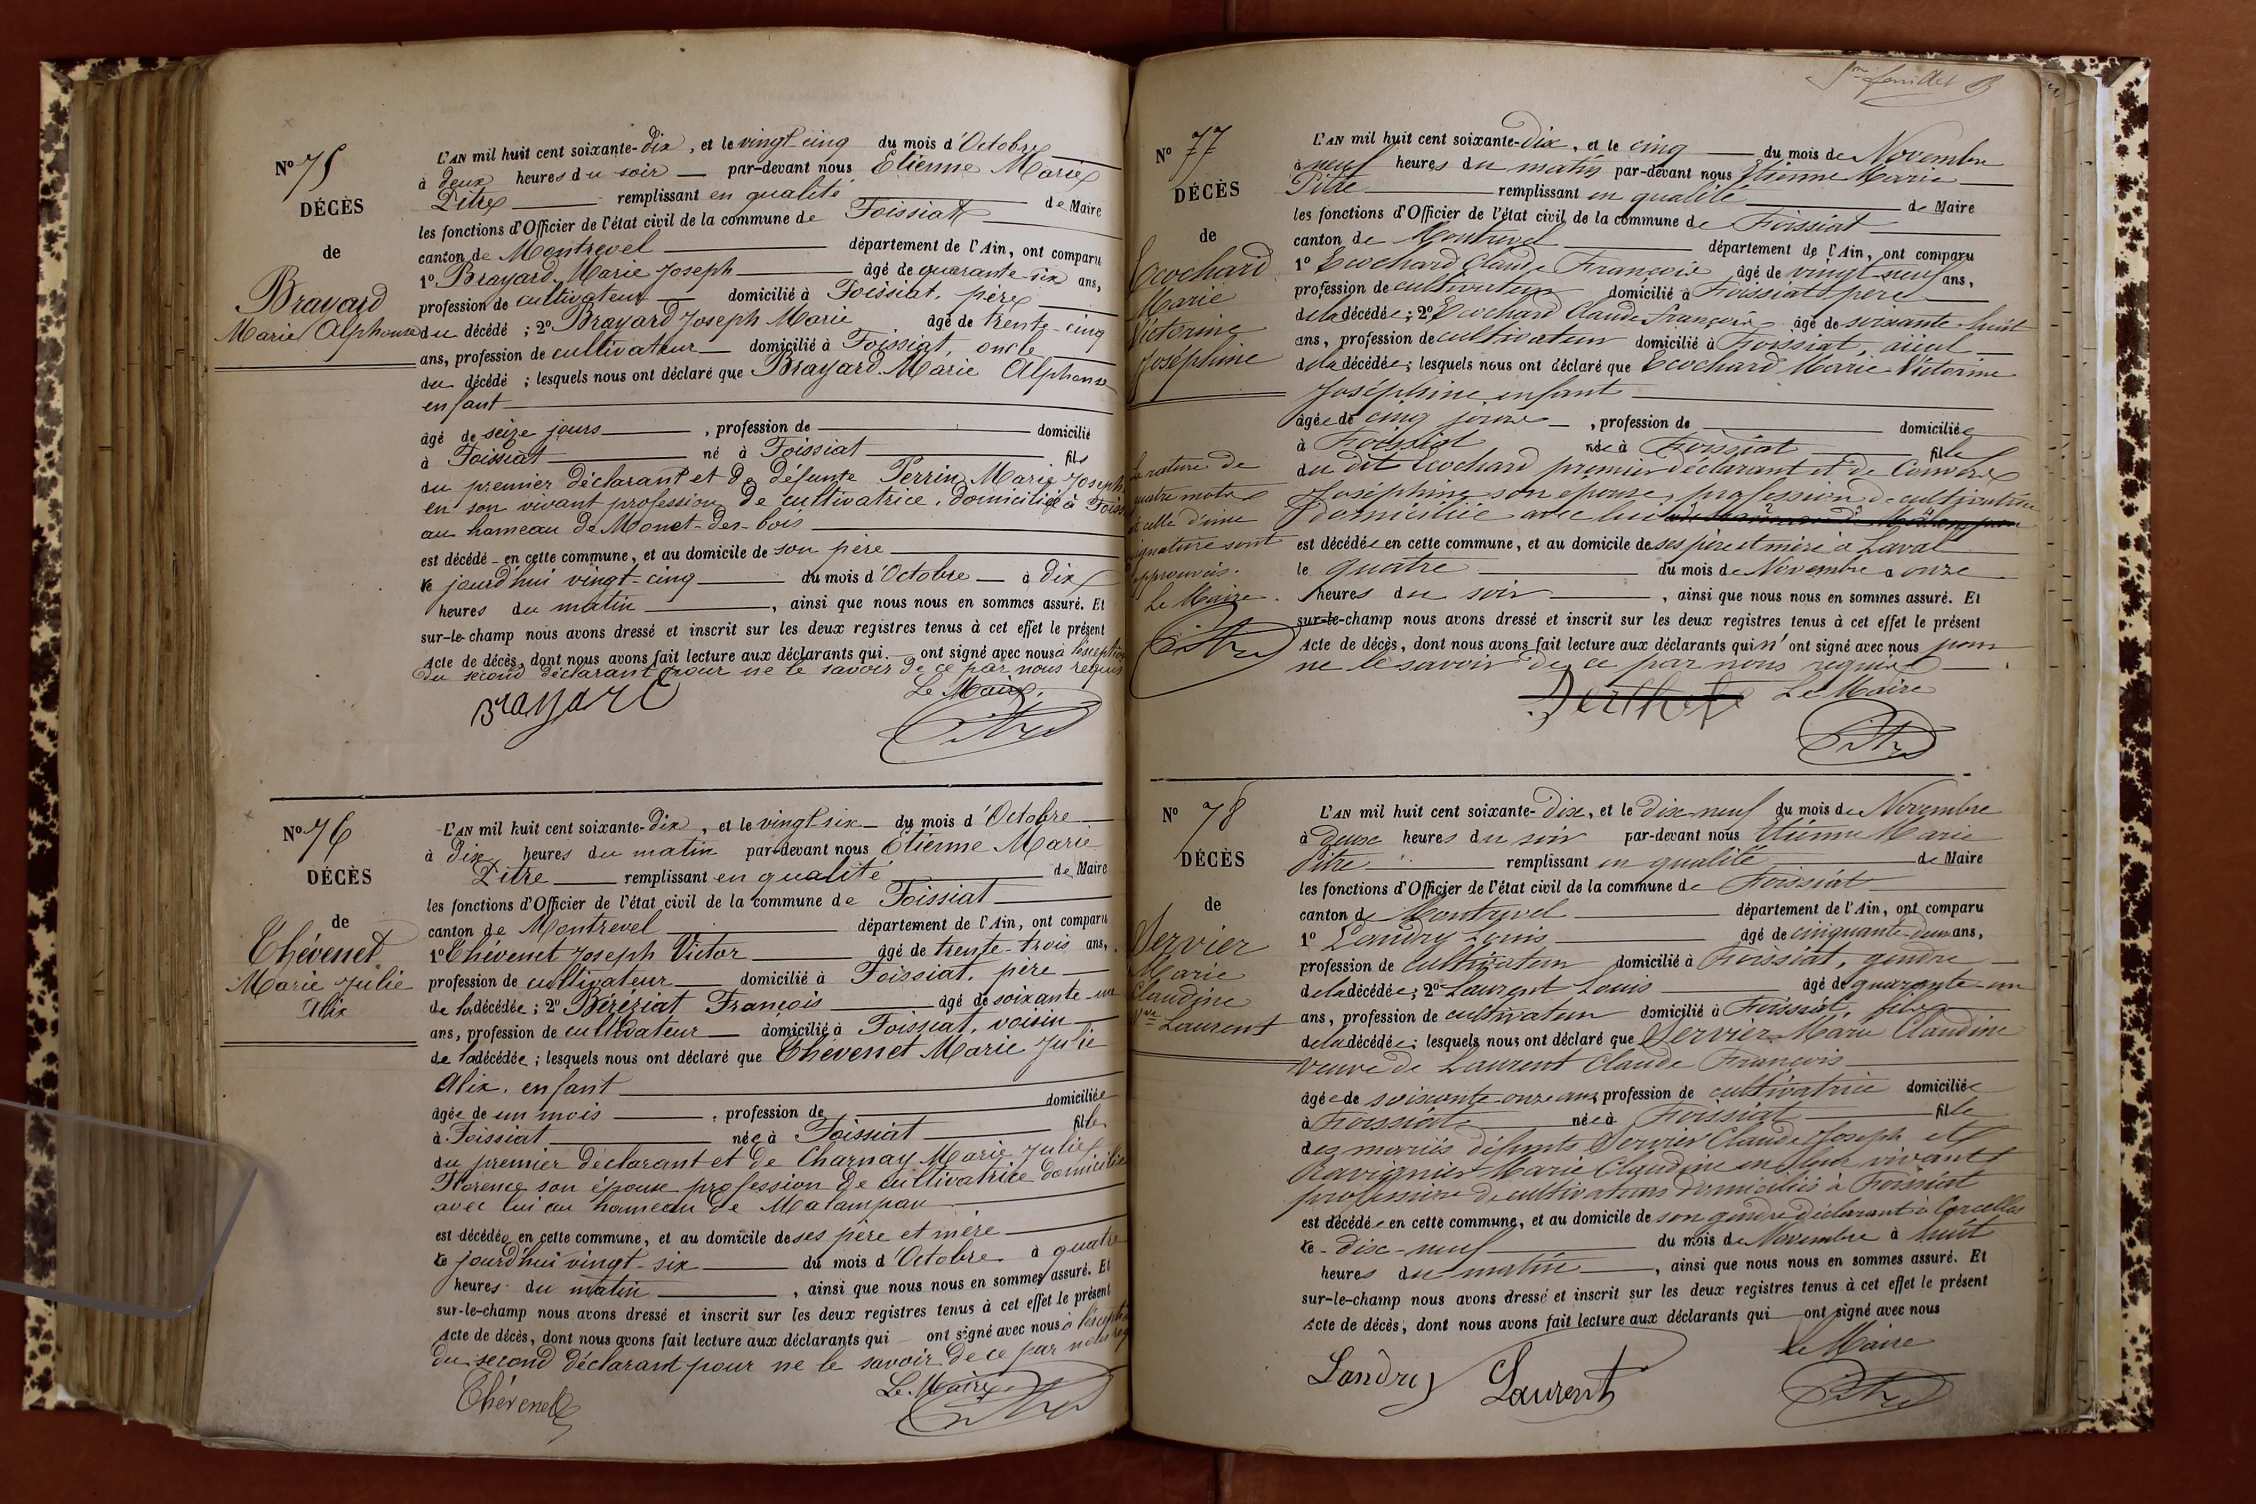 N° 75
DÉCÈS
de
Brayard
Marie Alphonse
L'AN mil huit cent soixante-dix, et le vingt cinq du mois d'Octobre
à deux heures du soir par-devant nous Etienne Marie
Pitre remplissant en qualité de Maire
les fonctions d'Officier de l'état civil de la commune de Foissiat
canton de Montrevel département de l'Ain, ont comparu
1° Brayard Marie Joseph âgé de quarante-six ans,
profession de cultivateur domicilié à Foissiat, père
du décédé ; 2° Brayard Joseph Marie âgé de trente-cinq
ans, profession de cultivateur domicilié à Foissiat, oncle
du décédé ; lesquels nous ont déclaré que Brayard Marie Alphonse
enfant
âgé de seize jours , profession de domicilié
à Foissiat né à Foissiat fils
du premier déclarant et de défunte Perrin Marie Joseph
en son vivant profession de cultivatrice, domiciliée à Foiss
au hameau de Monet-des-bois
est décédé en cette commune, et au domicile de son père
le jourd'hui vingt-cinq du mois d'Octobre à dix
heures du matin , ainsi que nous nous en sommes assuré. Et
sur-le-champ nous avons dressé et inscrit sur les deux registres tenus à cet effet le présent
Acte de décès, dont nous avons fait lecture aux déclarants qui ont signé avec nous à l'exception
du second déclarant pour ne le savoir de ce par nous requis
Brayard Le Maire
Pitre
N° 76
DÉCÈS
de
Thévenet
Marie Julie
Alix
L'AN mil huit cent soixante-dix, et le vingt six du mois d'Octobre
à dix heures du matin par-devant nous Etienne Marie
Pitre remplissant en qualité de Maire
les fonctions d'Officier de l'état civil de la commune de Foissiat
canton de Montrevel département de l'Ain, ont comparu
1° Thévenet Joseph Victor âgé de trente-trois ans,
profession de cultivateur domicilié à Foissiat, père
de la décédée ; 2° Béréziat François âgé de soixante-un
ans, profession de cultivateur domicilié à Foissiat, voisin
de la décédée ; lesquels nous ont déclaré que Thévenet Marie Julie
Alix, enfant
âgée de un mois , profession de domiciliée
à Foissiat née à Foissiat fille
du premier déclarant et de Charnay Marie Julie
Florence son épouse profession de cultivatrice domiciliée
avec lui au hameau de Malampau
est décédée en cette commune, et au domicile de ses père et mère
le jourd'hui vingt-six du mois d'Octobre à quatre
heures du matin , ainsi que nous nous en sommes assuré. Et
sur-le-champ nous avons dressé et inscrit sur les deux registres tenus à cet effet le présent
Acte de décès, dont nous avons fait lecture aux déclarants qui ont signé avec nous à l'exception
du second déclarant pour ne le savoir de ce par nous req
Thévenet Le Maire
Pitre
feuillet
N° 77
DÉCÈS
de
Ecochard
Marie
Victorine
Joséphine
La rature de
quatre mots
et celle d'une
signature sont
approuvées.
Le Maire
Pitre
L'AN mil huit cent soixante-dix, et le cinq du mois de Novembre
à neuf heures du matin par-devant nous Etienne Marie
Pitre remplissant en qualité de Maire
les fonctions d'Officier de l'état civil de la commune de Foissiat
canton de Montrevel département de l'Ain, ont comparu
1° Ecochard Claude François âgé de vingt neuf ans,
profession de cultivateur domicilié à Foissiat père
de la décédée ; 2° Ecochard Claude François âgé de soixante-huit
ans, profession de cultivateur domicilié à Foissiat, aïeul
de la décédée ; lesquels nous ont déclaré que Ecochard Marie Victorine
Joséphine enfant
âgée de cinq jours , profession de domiciliée
à Foissiat née à Foissiat fille
du dit Ecochard premier déclarant et de
Joséphine son épouse, profession de cultivatrice
domiciliée avec lui
est décédée en cette commune, et au domicile de ses père et mère à Laval
le quatre du mois de Novembre à onze
heures du soir , ainsi que nous nous en sommes assuré. Et
sur-le-champ nous avons dressé et inscrit sur les deux registres tenus à cet effet le présent
Acte de décès, dont nous avons fait lecture aux déclarants qui n'ont signé avec nous pour
ne le savoir de ce par nous requis
Le Maire
Pitre
N° 78
DÉCÈS
de
Servier
Marie
Claudine
Vve Laurent
L'AN mil huit cent soixante-dix, et le dix-neuf du mois de Novembre
à deux heures du soir par-devant nous Etienne Marie
Pitre remplissant en qualité de Maire
les fonctions d'Officier de l'état civil de la commune de Foissiat
canton de Montrevel département de l'Ain, ont comparu
1° Landry Louis âgé de cinquante-deux ans,
profession de cultivateur domicilié à Foissiat, gendre
de la décédée ; 2° Laurent Louis âgé de quarante-un
ans, profession de cultivateur domicilié à Foissiat, fils
de la décédée ; lesquels nous ont déclaré que Servier Marie Claudine
veuve de Laurent Claude François
âgée de soixante onze ans, profession de cultivatrice domiciliée
à Foissiat née à Foissiat fille
des mariés défunts Servier Claude Joseph et
Ravignier Marie Claudine en leur vivant
profession de cultivateurs domiciliés à Foissiat
est décédée en cette commune, et au domicile de son gendre déclarant à Corcelles
le dix-neuf du mois de Novembre à huit
heures du matin , ainsi que nous nous en sommes assuré. Et
sur-le-champ nous avons dressé et inscrit sur les deux registres tenus à cet effet le présent
Acte de décès, dont nous avons fait lecture aux déclarants qui ont signé avec nous
le Maire
Landry Laurent Pitre